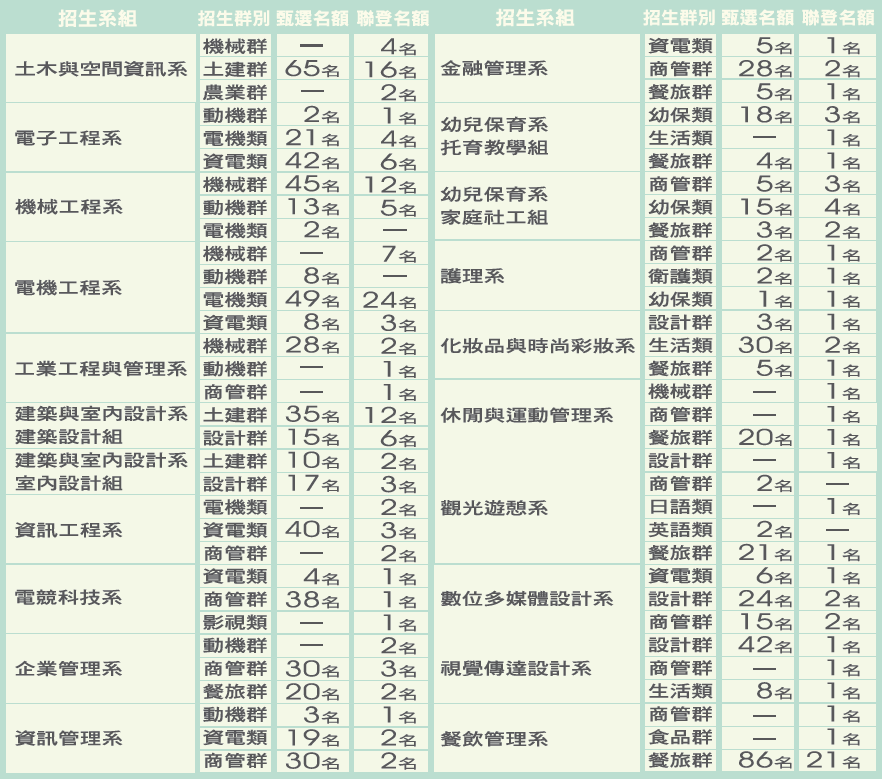 招生系組 招生群別 甄選名額 聯登名額
土木與空間資訊系
機械群 — 4名
土建群 65名 16名
農業群 — 2名
電子工程系
動機群 2名 1名
電機類 21名 4名
資電類 42名 6名
機械工程系
機械群 45名 12名
動機群 13名 5名
電機類 2名 —
電機工程系
機械群 — 7名
動機群 8名 —
電機類 49名 24名
資電類 8名 3名
工業工程與管理系
機械群 28名 2名
動機群 — 1名
商管群 — 1名
建築與室內設計系
建築設計組
土建群 35名 12名
設計群 15名 6名
建築與室內設計系
室內設計組
土建群 10名 2名
設計群 17名 3名
資訊工程系
電機類 — 2名
資電類 40名 3名
商管群 — 2名
電競科技系
資電類 4名 1名
商管群 38名 1名
影視類 — 1名
企業管理系
動機群 — 2名
商管群 30名 3名
餐旅群 20名 2名
資訊管理系
動機群 3名 1名
資電類 19名 2名
商管群 30名 2名
招生系組 招生群別 甄選名額 聯登名額
金融管理系
資電類 5名 1名
商管群 28名 2名
餐旅群 5名 1名
幼兒保育系
托育教學組
幼保類 18名 3名
生活類 — 1名
餐旅群 4名 1名
幼兒保育系
家庭社工組
商管群 5名 3名
幼保類 15名 4名
餐旅群 3名 2名
護理系
商管群 2名 1名
衛護類 2名 1名
幼保類 1名 1名
化妝品與時尚彩妝系
設計群 3名 1名
生活類 30名 2名
餐旅群 5名 1名
休閒與運動管理系
機械群 — 1名
商管群 — 1名
餐旅群 20名 1名
設計群 — 1名
觀光遊憩系
商管群 2名 —
日語類 — 1名
英語類 2名 —
餐旅群 21名 1名
數位多媒體設計系
資電類 6名 1名
設計群 24名 2名
商管群 15名 2名
視覺傳達設計系
設計群 42名 1名
商管群 — 1名
生活類 8名 1名
餐飲管理系
商管群 — 1名
食品群 — 1名
餐旅群 86名 21名